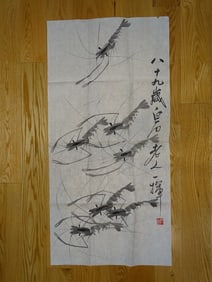 八十九歲白石老人一揮